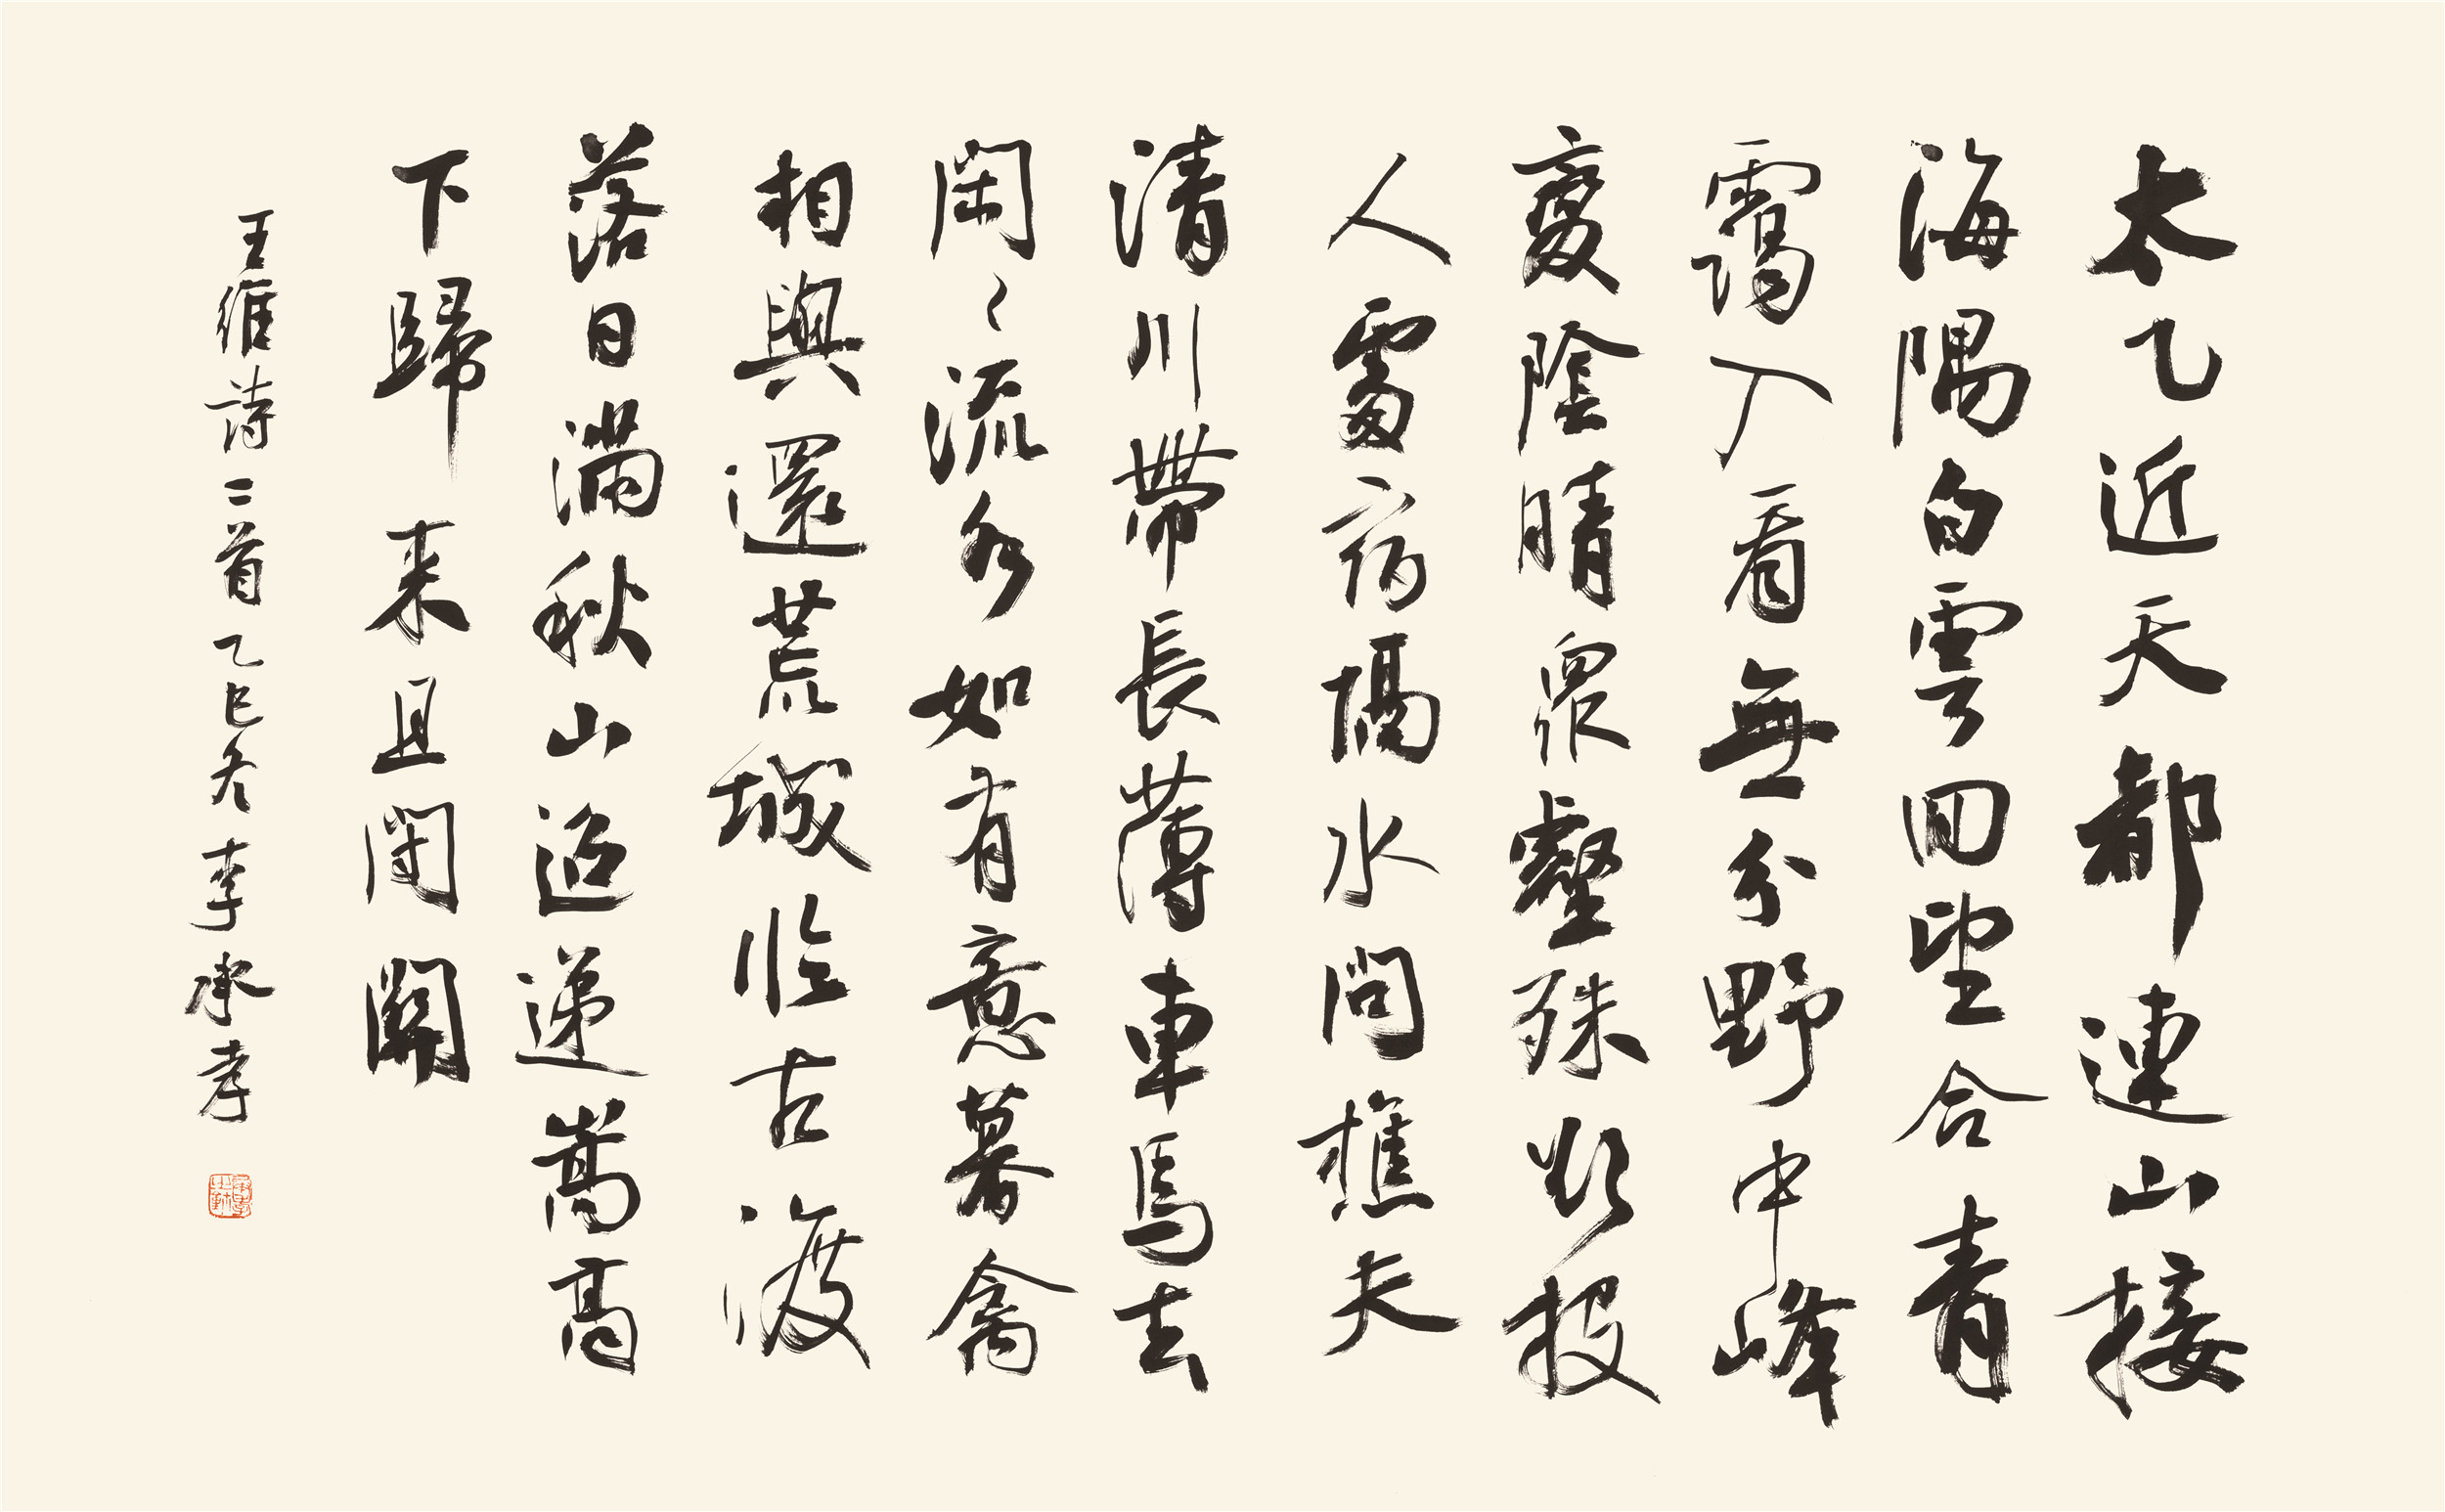 太乙近天都連山接
海隅白雲囬望合青
靄入看無分野中峰
變陰晴衆壑殊欲投
人處宿隔水問樵夫
清川帶長薄車馬去
閑〻流水如有意暮禽
相與還荒城临古渡
落日滿秋山迢递嵩高
下歸来且閉關
王維詩二首乙巳冬李承孝